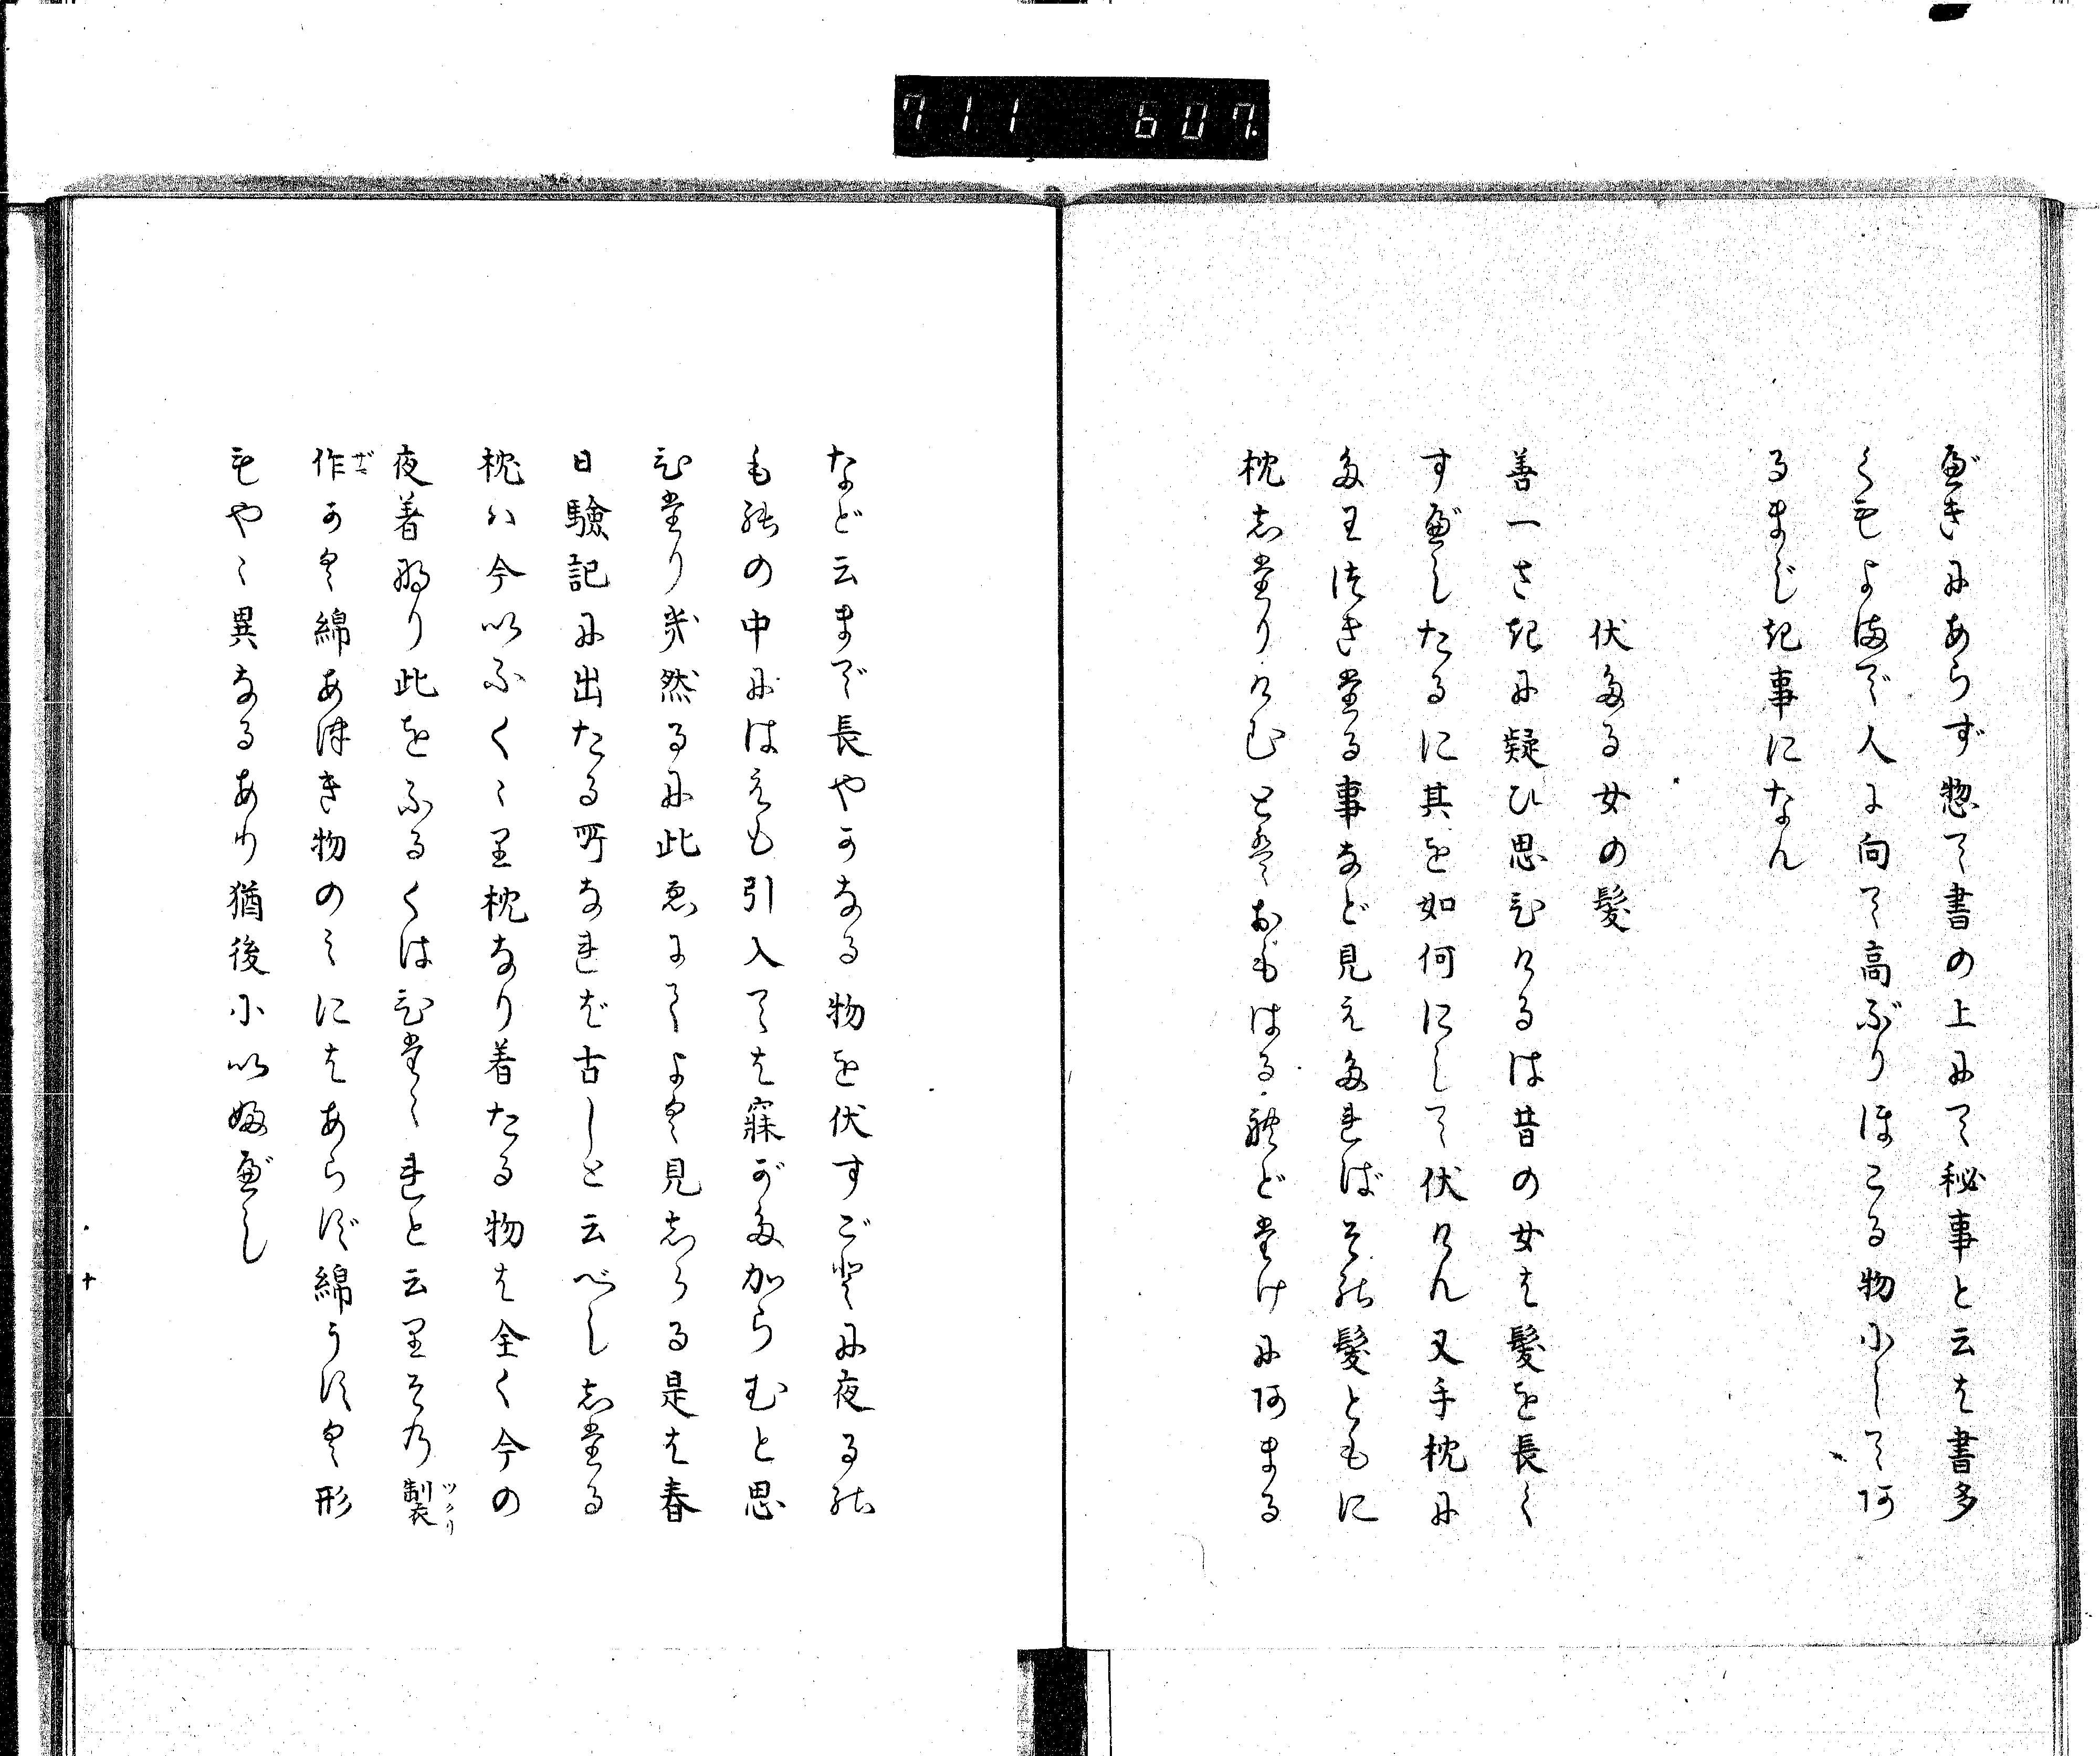 711 607.
べきにあらず惣て書の上にて秘事と云は書多
くもよまで人に向て高ぶりほこる物にしてあ
るまじき事になん
伏たる女の髪
善一さきに疑ひ思ひけるは昔の女は髪を長く
すべしたるに其を如何にして伏けん又手枕に
たわつきたる事など見えたればその髪ともに
枕したりけむとそおもはるれどたけにあまる
など云まで長やかなる物を伏すごとに夜るの
ものの中にはえも引入ては寐がたからむと思
ひたりき然るに此ゑにてよく見しらる是は春
日験記に出たる所なれば古しと云べししたる
枕は今いふくゝり枕なり着たる物は全く今の
夜着なり此をふるくはひたゝれと云りその製ツクリ
作ザマかく綿あつき物のみにはあらず綿うすく形
もやゝ異なるあり猶後にいふべし